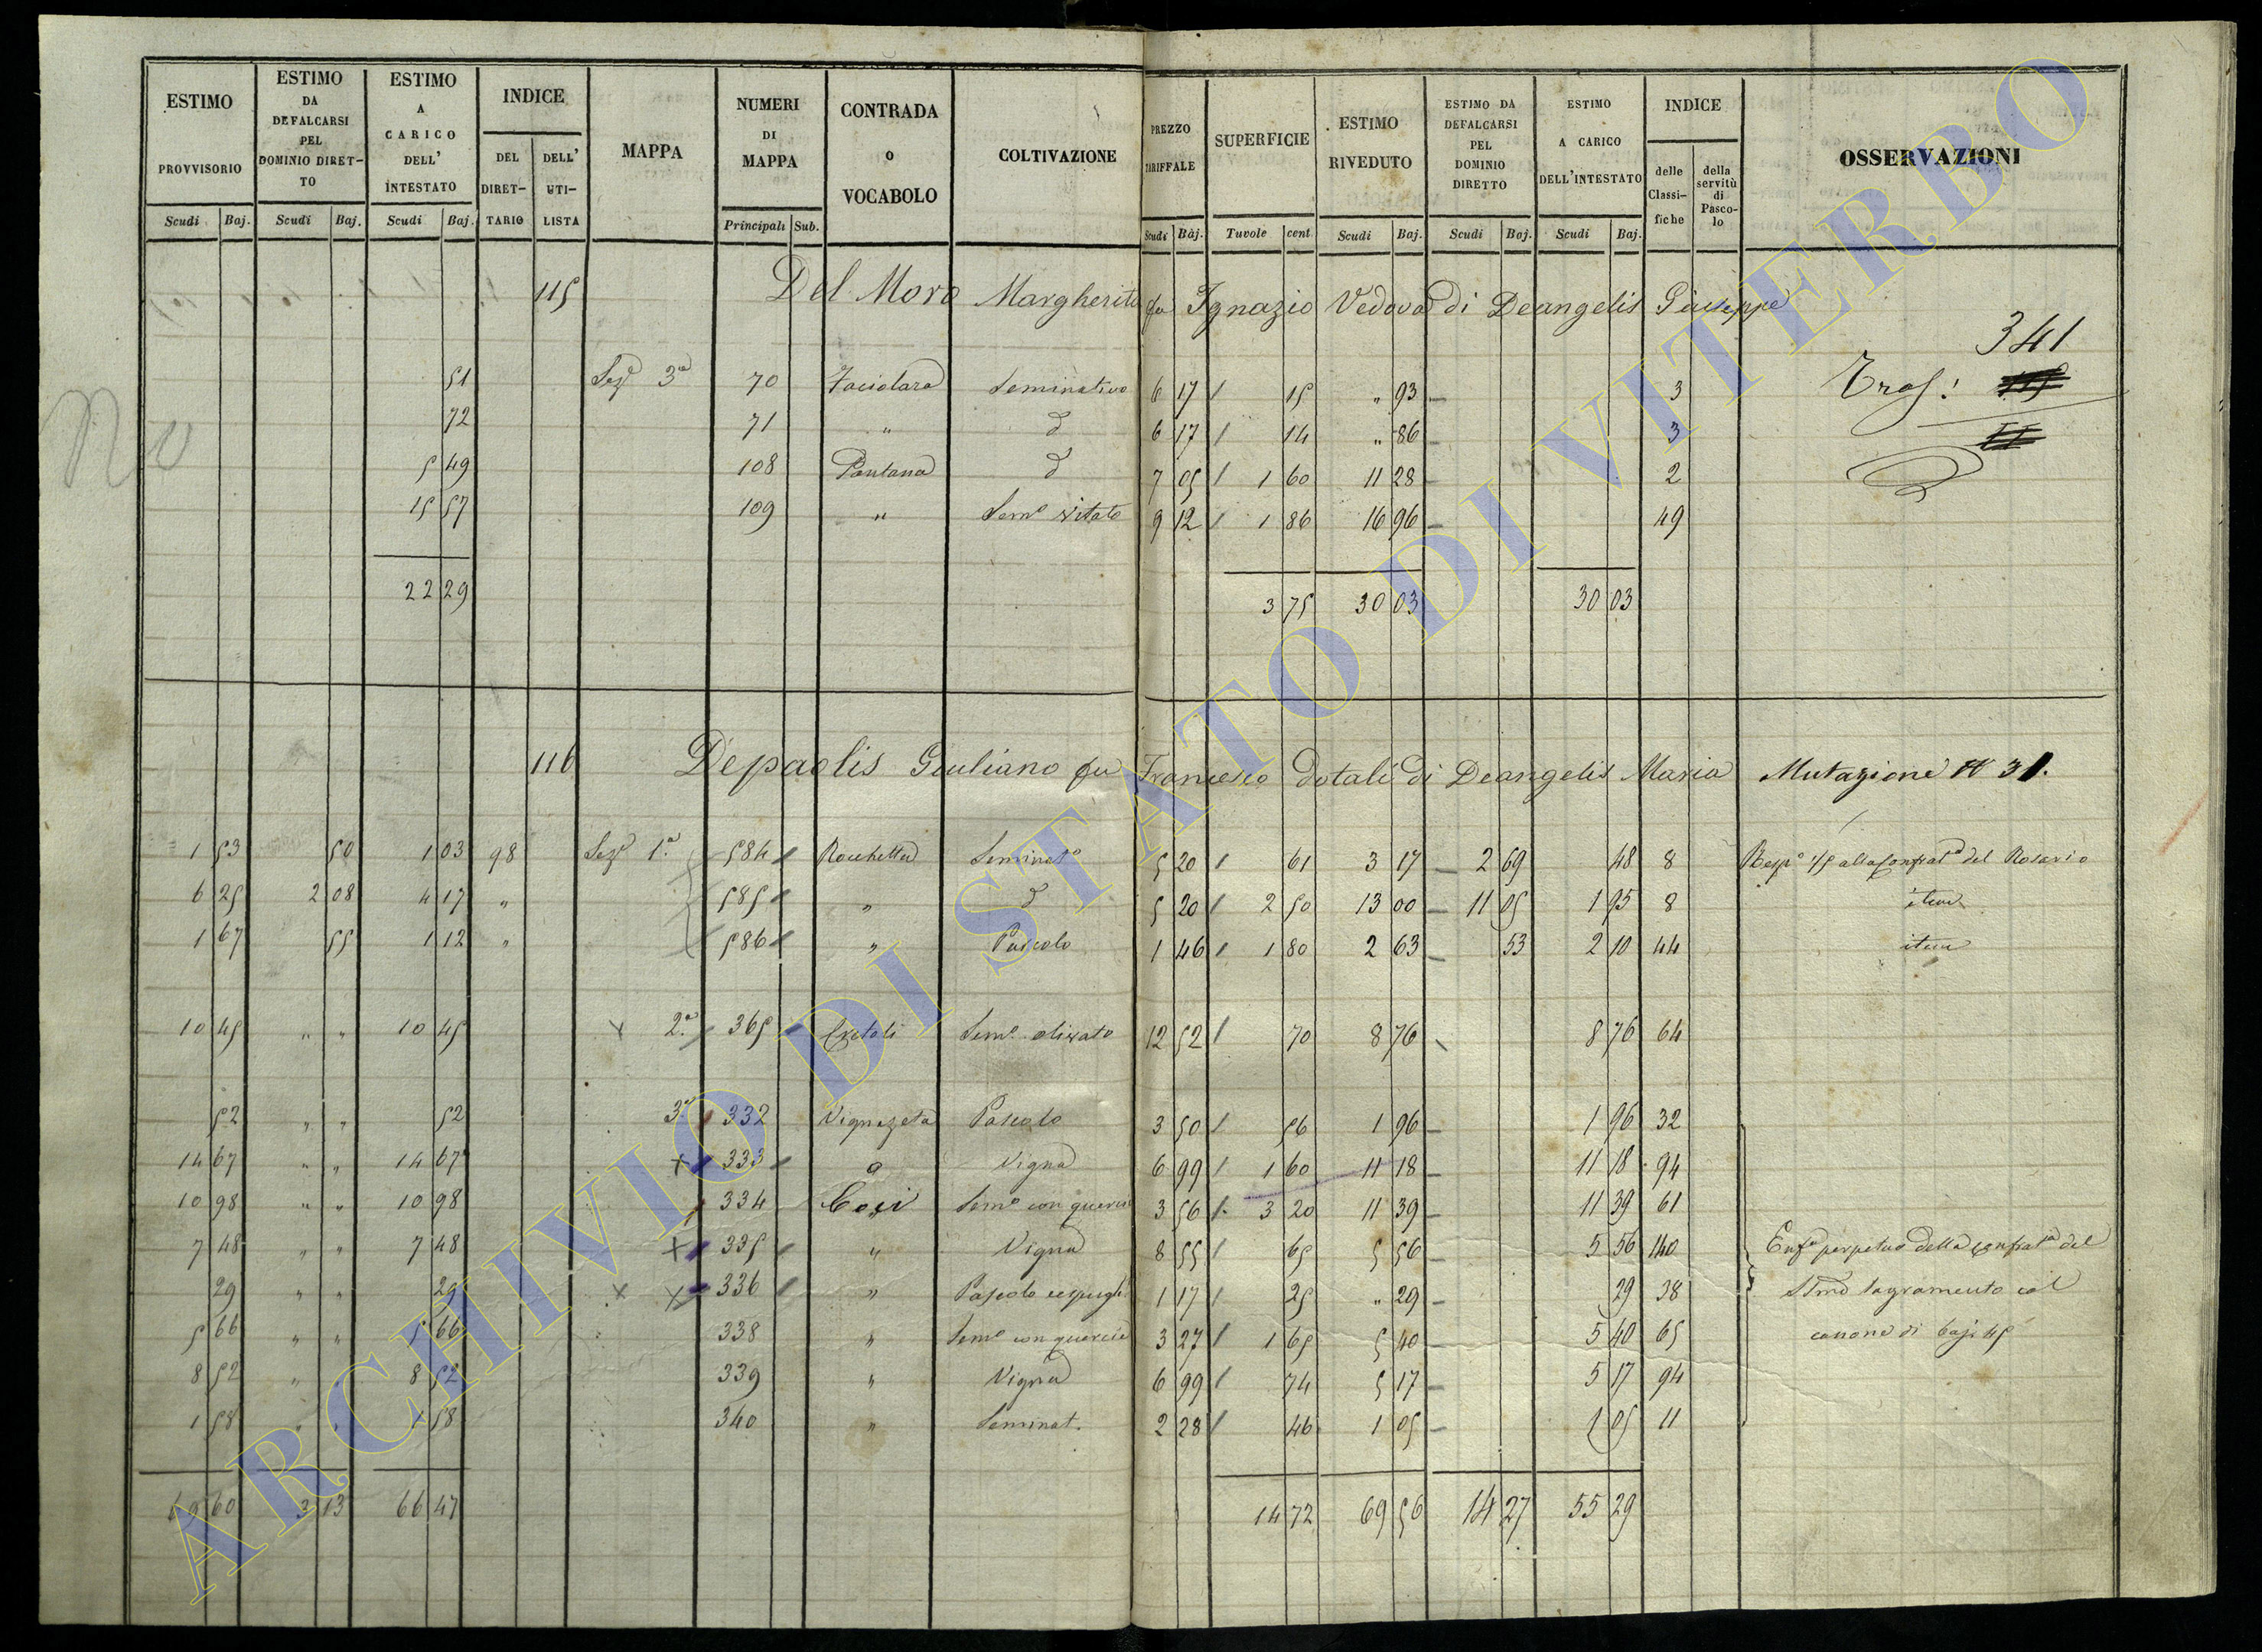 ESTIMO PROVVISORIO Scudi Baj. ESTIMO DA DEFALCARSI PEL DOMINIO DIRETTO Scudi Baj. ESTIMO A CARICO DELL' INTESTATO Scudi Baj. INDICE DEL DIRETTARIO DELL' UTILISTA MAPPA NUMERI DI MAPPA Principali Sub. CONTRADA O VOCABOLO COLTIVAZIONE PREZZO TARIFFALE Scudi Baj. SUPERFICIE Tavole cent ESTIMO RIVEDUTO Scudi Baj. ESTIMO DA DEFALCARSI PEL DOMINIO DIRETTO Scudi Baj. ESTIMO A CARICO DELL'INTESTATO Scudi Baj. INDICE delle Classifiche della servitù di Pascolo OSSERVAZIONI
115 Del Moro Margherita fu Ignazio Vedova di Deangelis Giuseppe
341
51 Sez.e 3a 70 Faciolara Seminativo 6 17 / 15 " 93 3 Tras!
72 71 " d 6 17 / 14 " 86 3
5 49 108 Pantana d 7 05 / 1 60 11 28 2
15 57 109 " Sem.o vitato 9 12 / 1 86 16 96 49
22 29 3 75 30 03 30 03
116 Depaolis Giuliano fu Francesco dotali di Deangelis Maria Mutazione N 31.
1 53 50 1 03 98 Sez.e 1.a 584 Rocchetta Seminat.o 5 20 / 61 3 17 2 69 48 8 Resp.e 1/5 alla Confrat.a del Rosario
6 25 2 08 4 17 " 585 " d 5 20 / 2 50 13 00 11 05 1 95 8 item
1 67 55 1 12 " 586 " Pascolo 1 46 / 1 80 2 63 53 2 10 44 item
10 45 " " 10 45 x 2.a 365 Sem.o olivato 12 52 / 70 8 76 8 76 64
52 " " 52 3.a 332 Vignazeta Pascolo 3 50 / 56 1 96 1 96 32
14 67 " " 14 67 x 333 a Vigna 6 99 / 1 60 11 18 11 18 94
10 98 " " 10 98 334 Coci Sem.o con querce 3 56 / 3 20 11 39 11 39 61
7 48 " " 7 48 x 335 " Vigna 8 55 / 65 5 56 5 56 140 Enf.a perpetua della Confrat.a del
29 " " 29 x x 336 " Pascolo cespugl. 1 17 / 25 " 29 29 38 SSmo Sagramento col
5 66 " " 5 66 338 " Sem.o con quercie 3 27 / 1 65 5 40 5 40 65 canone di baj: 45
8 52 " " 8 52 339 " Vigna 6 99 / 74 5 17 5 17 94
1 58 " " 1 58 340 " Seminat. 2 28 / 46 1 05 1 05 11
69 60 3 13 66 47 14 72 69 56 14 27 55 29
ARCHIVIO DI STATO DI VITERBO